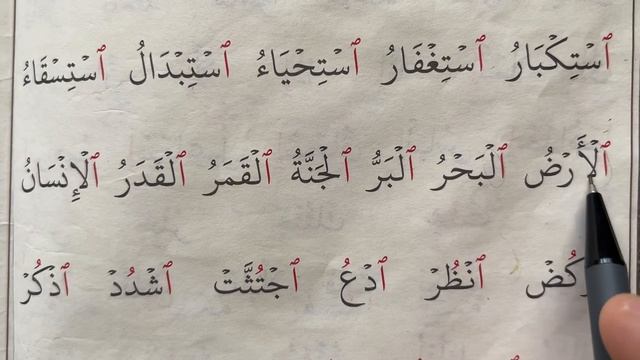 ٱسْتِكْبَارُ ٱسْتِغْفَارُ ٱسْتِحْيَاءُ ٱسْتِبْدَالُ ٱسْتِسْقَاءُ
ٱلْأَرْضُ ٱلْبَحْرُ ٱلْبَرُّ ٱلْجَنَّةُ ٱلْقَمَرُ ٱلْقَدَرُ ٱلْإِنْسَانُ
ٱنْظُرْ ٱدْعُ ٱجْتُثَّتْ ٱشْدُدْ ٱذْكُرْ